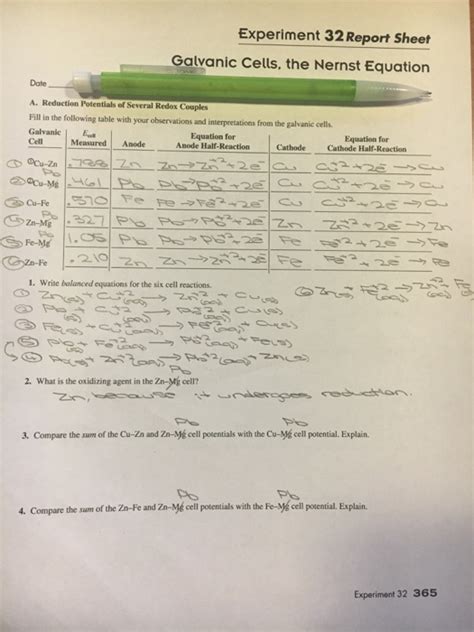 Experiment 32 Report Sheet
Galvanic Cells, the Nernst Equation
Date
A. Reduction Potentials of Several Redox Couples
Fill in the following table with your observations and interpretations from the galvanic cells.
Galvanic Cell E cell Measured Anode Equation for Anode Half-Reaction Cathode Equation for Cathode Half-Reaction
① Cu–Zn .788 Zn Zn→Zn+2+2e- Cu Cu+2+2e-→Cu
Pb
② Cu–Mg .461 Pb Pb→Pb+2+2e- Cu Cu+2+2e-→Cu
③ Cu–Fe .570 Fe Fe→Fe+2+2e- Cu Cu+2+2e-→Cu
Pb
④ Zn–Mg .327 Pb Pb→Pb+2+2e- Zn Zn+2+2e-→Zn
Pb
⑤ Fe–Mg 1.05 Pb Pb→Pb+2+2e- Fe Fe+2+2e-→Fe
⑥ Zn–Fe .210 Zn Zn→Zn+2+2e- Fe Fe+2+2e-→Fe
1. Write balanced equations for the six cell reactions.
① Zn(s) + Cu+2(aq) → Zn+2(aq) + Cu(s)
⑥ Zn(s) + Fe+2(aq) → Zn+2(aq) + Fe(s)
② Pb(s) + Cu+2(aq) → Pb+2(aq) + Cu(s)
③ Fe(s) + Cu+2(aq) → Fe+2(aq) + Cu(s)
⑤ Pb(s) + Fe+2(aq) → Pb+2(aq) + Fe(s)
④ Pb(s) + Zn+2(aq) → Pb+2(aq) + Zn(s)
Pb
2. What is the oxidizing agent in the Zn–Mg cell?
Zn, because it undergoes reduction.
Pb Pb
3. Compare the sum of the Cu–Zn and Zn–Mg cell potentials with the Cu–Mg cell potential. Explain.
Pb Pb
4. Compare the sum of the Zn–Fe and Zn–Mg cell potentials with the Fe–Mg cell potential. Explain.
Experiment 32 365